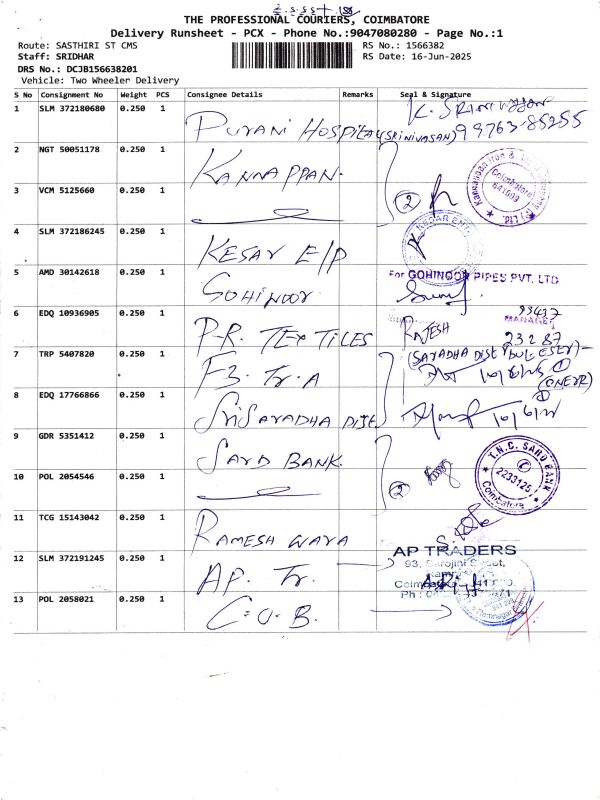 THE PROFESSIONAL COURIERS, COIMBATORE
Delivery Runsheet - PCX - Phone No.:9047080280 - Page No.:1
Route: SASTHIRI ST CMS RS No.: 1566382
Staff: SRIDHAR RS Date: 16-Jun-2025
DRS No.: DCJB156638201
Vehicle: Two Wheeler Delivery
S No Consignment No Weight PCS Consignee Details Remarks Seal & Signature
1 SLM 372180680 0.250 1 PURANI HOSPITAL (SRINIVASAN) 99763-85255
2 NGT 50051178 0.250 1 KANNAPPAN.
3 VCM 5125660 0.250 1 2
4 SLM 372186245 0.250 1 KESAR E/P
5 AMD 30142618 0.250 1 GOHINOOR For GOHINOOR PIPES PVT. LTD
6 EDQ 10936905 0.250 1 P.R. TEXTILES RAJESH 93437 MANAGER
23287
7 TRP 5407820 0.250 1 F3. Tr. A
8 EDQ 17766866 0.250 1 SRI SARADHA DIST
9 GDR 5351412 0.250 1 SARD BANK. T.N.C. SARD BANK
2233125
Coimbatore
10 POL 2054546 0.250 1 2
11 TCG 15143042 0.250 1 RAMESH WARA
12 SLM 372191245 0.250 1 AP. Tr. AP TRADERS
93, Sarojini Street,
13 POL 2058021 0.250 1 C.U.B.